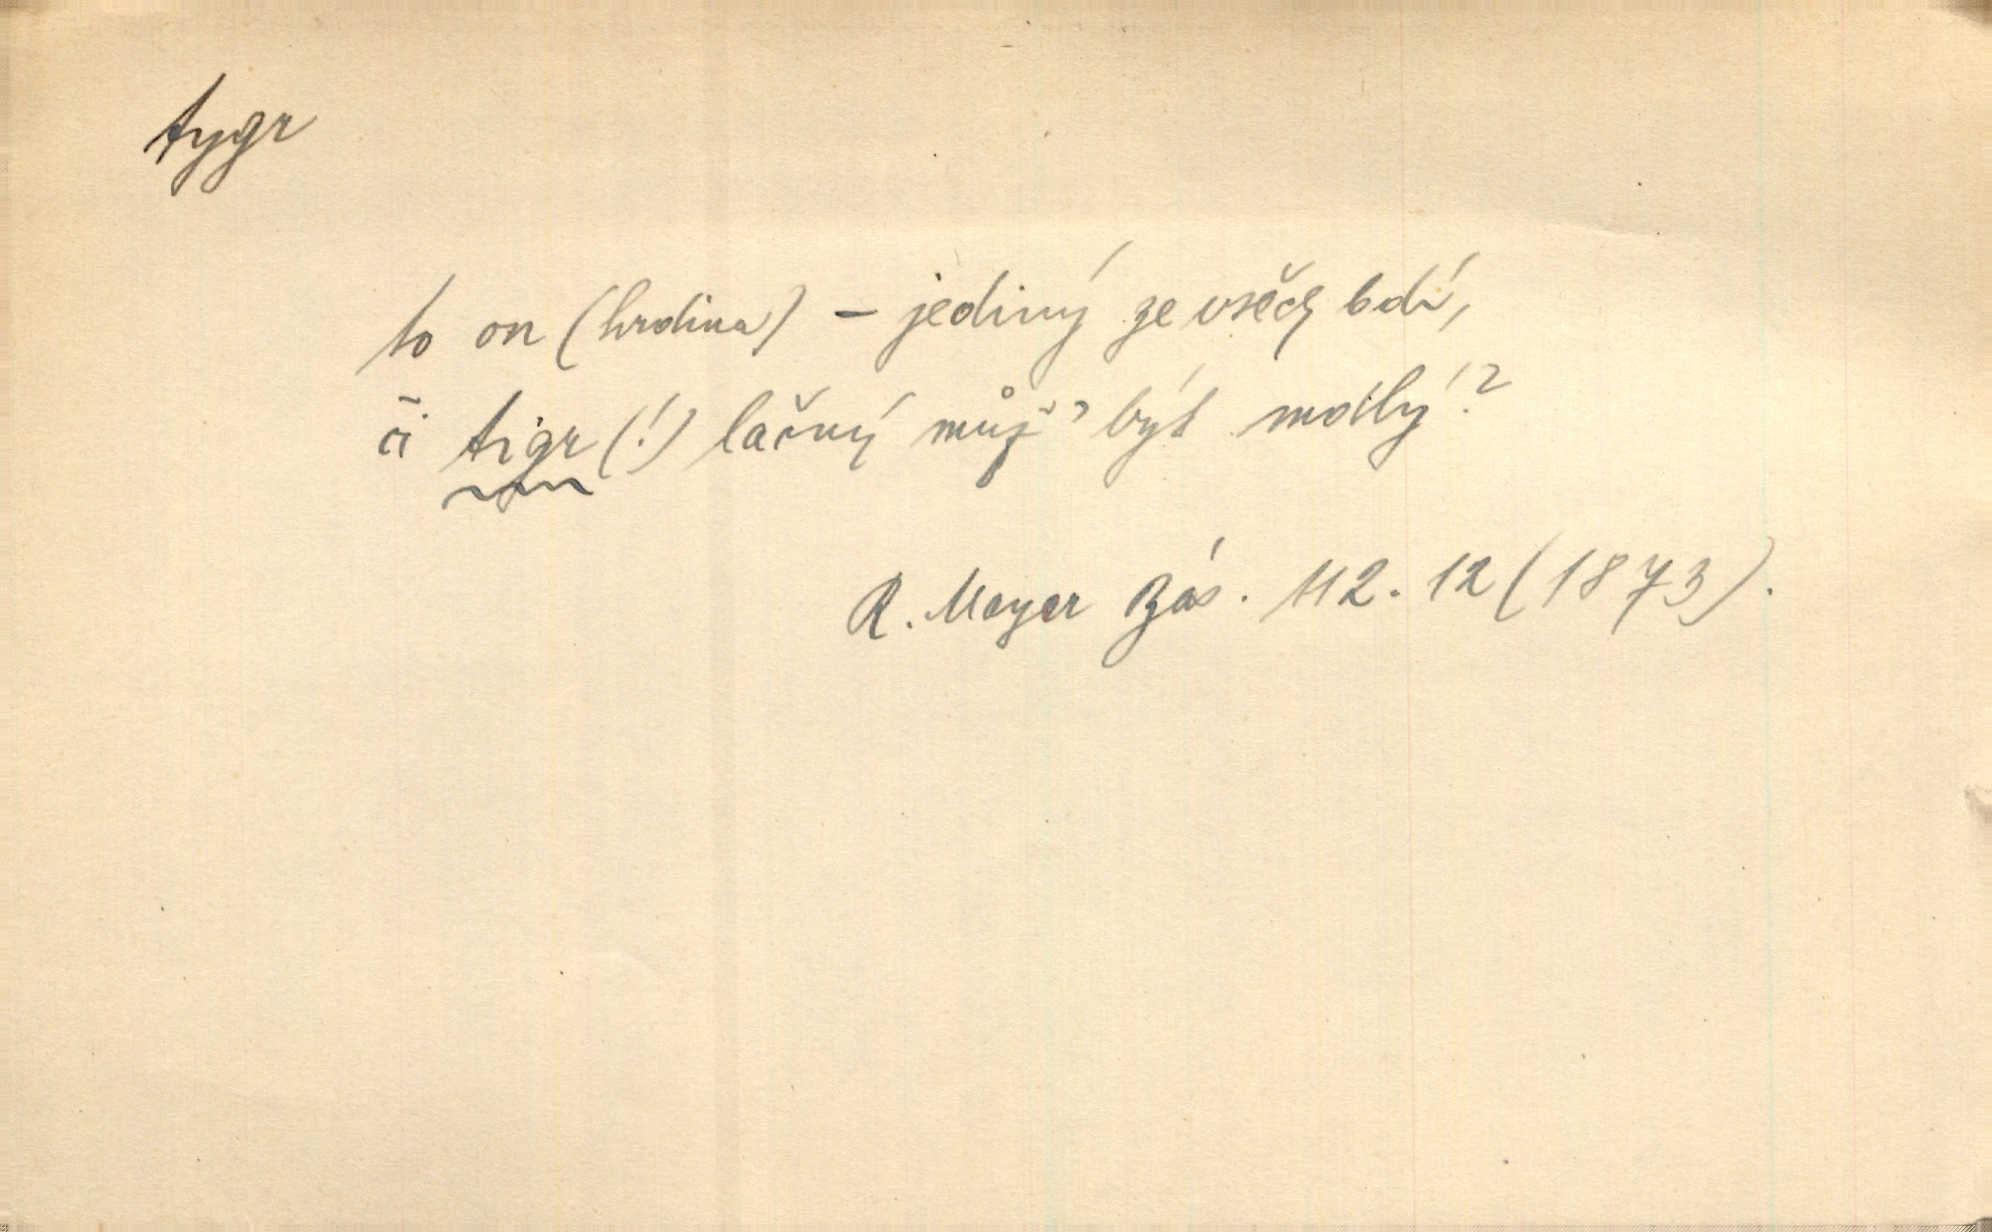 tygr
to on (hrdina) – jediný ze všech bdí,
či tigr (!) lačný můž' být mdlý?
R. Mayer Bás. 112. 12 (1873).